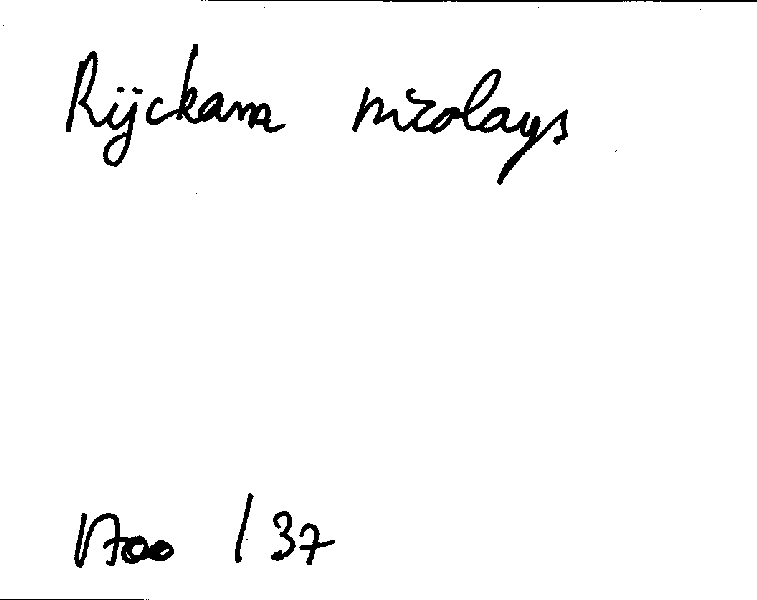 Rijckam nicolays
1700 / 37